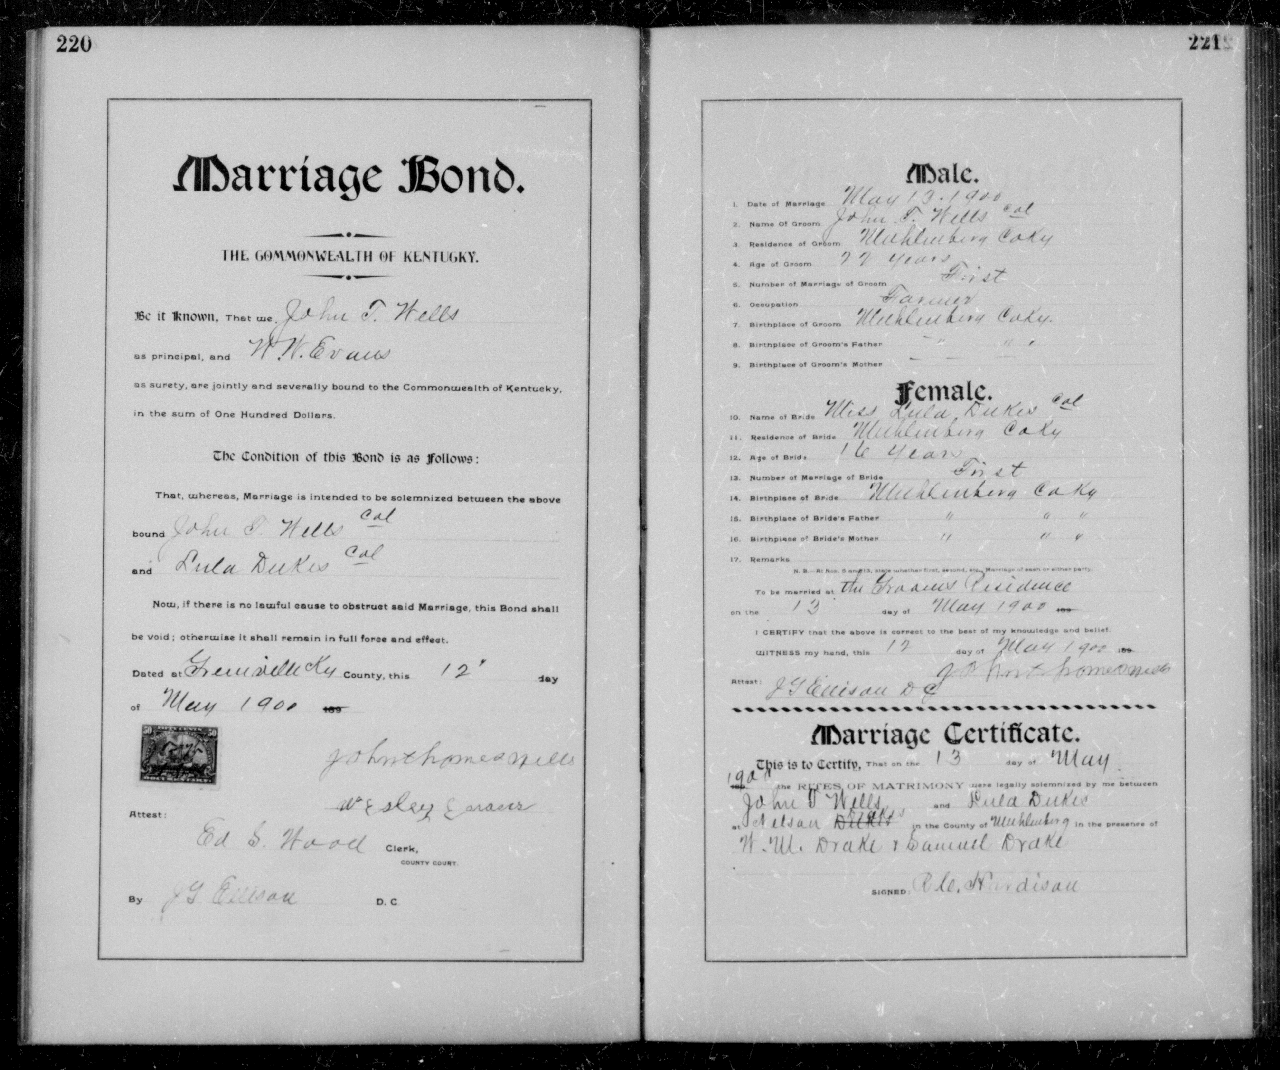 220
Marriage Bond.
THE COMMONWEALTH OF KENTUCKY.
Be it Known, That we, John T. Wells
as principal, and W. W. Evans
as surety, are jointly and severally bound to the Commonwealth of Kentucky,
in the sum of One Hundred Dollars.
The Condition of this Bond is as Follows:
That, whereas, Marriage is intended to be solemnized between the above
bound John T. Wells Col
and Lula Dukes Col
Now, if there is no lawful cause to obstruct said Marriage, this Bond shall
be void; otherwise it shall remain in full force and effect.
Dated at Greenville Ky County, this 12" day
of May 1900 189
50 FIFTY CENTS 50
John thomas wells
Wesley Evans
Attest:
Ed S. Wood Clerk,
COUNTY COURT.
By J G Ellison D. C.
221
Male.
1. Date of Marriage May 13. 1900
2. Name Of Groom John T. Wells Col
3. Residence of Groom Muhlenberg Co Ky
4. Age of Groom 22 years
5. Number of Marriage of Groom First
6. Occupation Farmer
7. Birthplace of Groom Muhlenberg Co Ky.
8. Birthplace of Groom's Father " " "
9. Birthplace of Groom's Mother
Female.
10. Name of Bride Miss Lula Dukes Col
11. Residence of Bride Muhlenberg Co Ky
12. Age of Bride 16 years
13. Number of Marriage of Bride First
14. Birthplace of Bride Muhlenberg Co Ky
15. Birthplace of Bride's Father " " "
16. Birthplace of Bride's Mother " " "
17. Remarks
N. B.—At Nos. 5 and 13, state whether first, second, etc., Marriage of each or either party.
To be married at the Grooms Residence
on the 13 day of May 1900 189
I CERTIFY that the above is correct to the best of my knowledge and belief.
WITNESS my hand, this 12 day of May 1900 189
John thomas wells
Attest: J G Ellison D C
Marriage Certificate.
This is to Certify, That on the 13 day of May
1900 the RITES OF MATRIMONY were legally solemnized by me between
John T Wells and Lula Dukes
at Nelson Dukes in the County of Muhlenberg in the presence of
W. M. Drake & Samuel Drake
SIGNED: Hardison